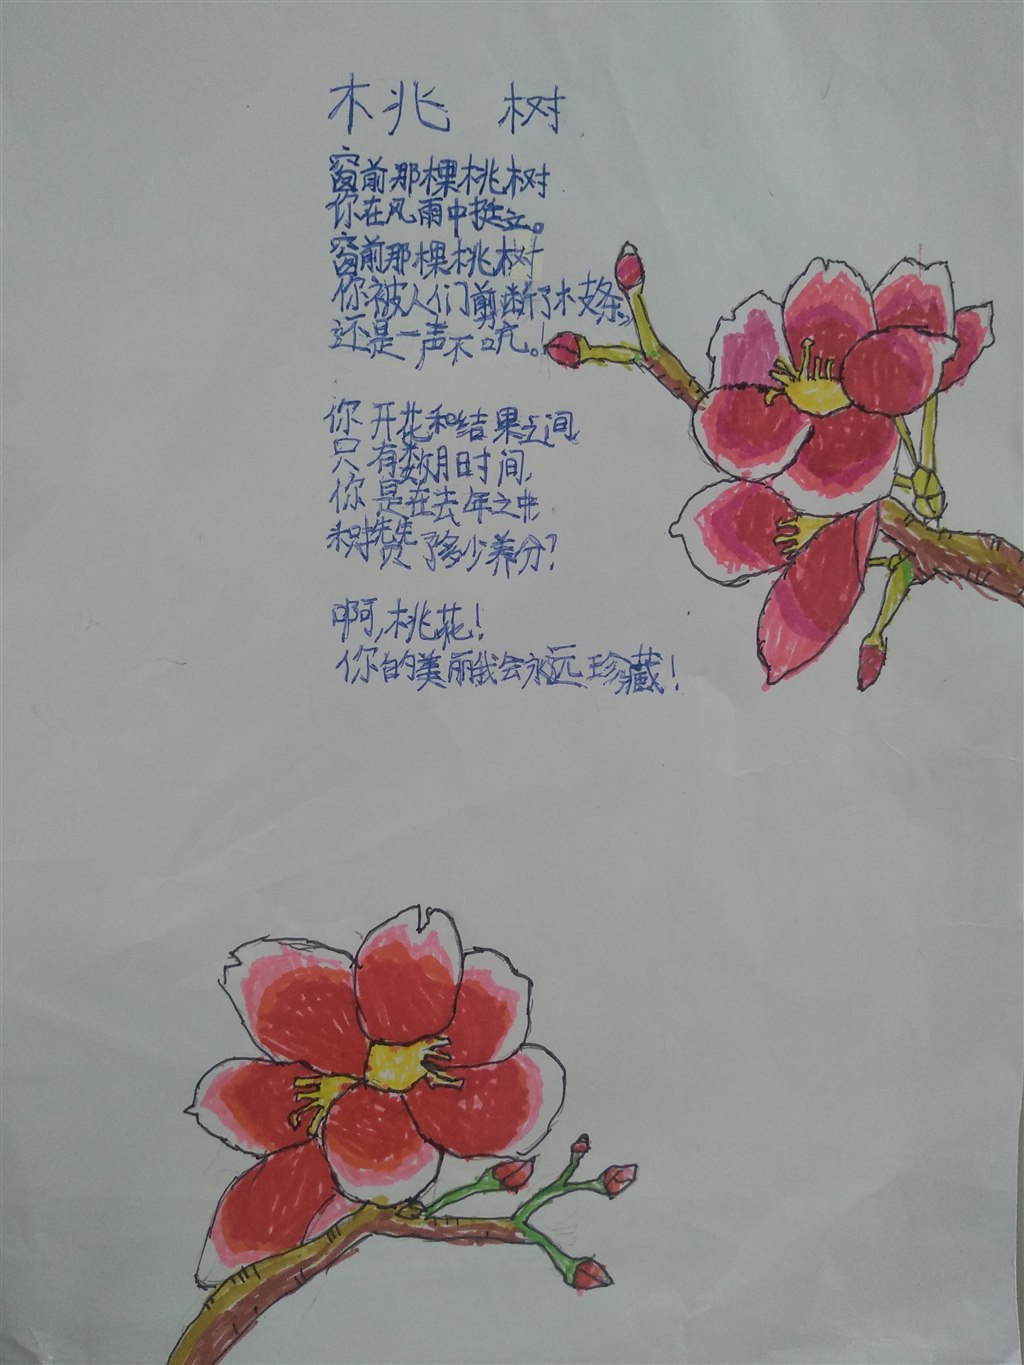 桃 树
窗前那棵桃树
你在风雨中挺立。
窗前那棵桃树
你被人们剪断了枝条,
还是一声不吭。!
你开花和结果之间
只有数月时间,
你是在去年之中
积攒了多少养分?
啊,桃花!
你的美丽我会永远珍藏!